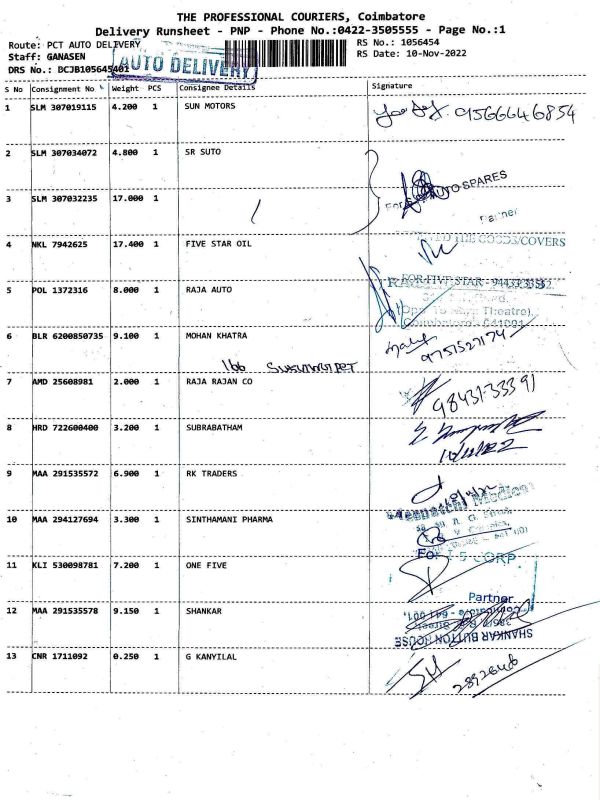 THE PROFESSIONAL COURIERS, Coimbatore
Delivery Runsheet - PNP - Phone No.:0422-3505555 - Page No.:1
Route: PCT AUTO DELIVERY
RS No.: 1056454
Staff: GANASEN
RS Date: 10-Nov-2022
DRS No.: BCJB105645401
AUTO DELIVERY
S No Consignment No Weight PCS Consignee Details Signature
1 SLM 307019115 4.200 1 SUN MOTORS
9566646854
2 SLM 307034072 4.800 1 SR SUTO
AUTO SPARES
Partner
3 SLM 307032235 17.000 1
4 NKL 7942625 17.400 1 FIVE STAR OIL
THE GOODS/COVERS
FOR FIVE STAR
5 POL 1372316 8.000 1 RAJA AUTO
Theatre),
Coimbatore
6 BLR 6200850735 9.100 1 MOHAN KHATRA
9751527174
166
7 AMD 25608981 2.000 1 RAJA RAJAN CO
98431-33391
8 HRD 722600400 3.200 1 SUBRABATHAM
9 MAA 291535572 6.900 1 RK TRADERS
10 MAA 294127694 3.300 1 SINTHAMANI PHARMA
For I-5 CORP.
11 KLI 530098781 7.200 1 ONE FIVE
Partner
12 MAA 291535578 9.150 1 SHANKAR
Coimbatore - 641 001.
SHANKAR BUTTON HOUSE
13 CNR 1711092 0.250 1 G KANYILAL